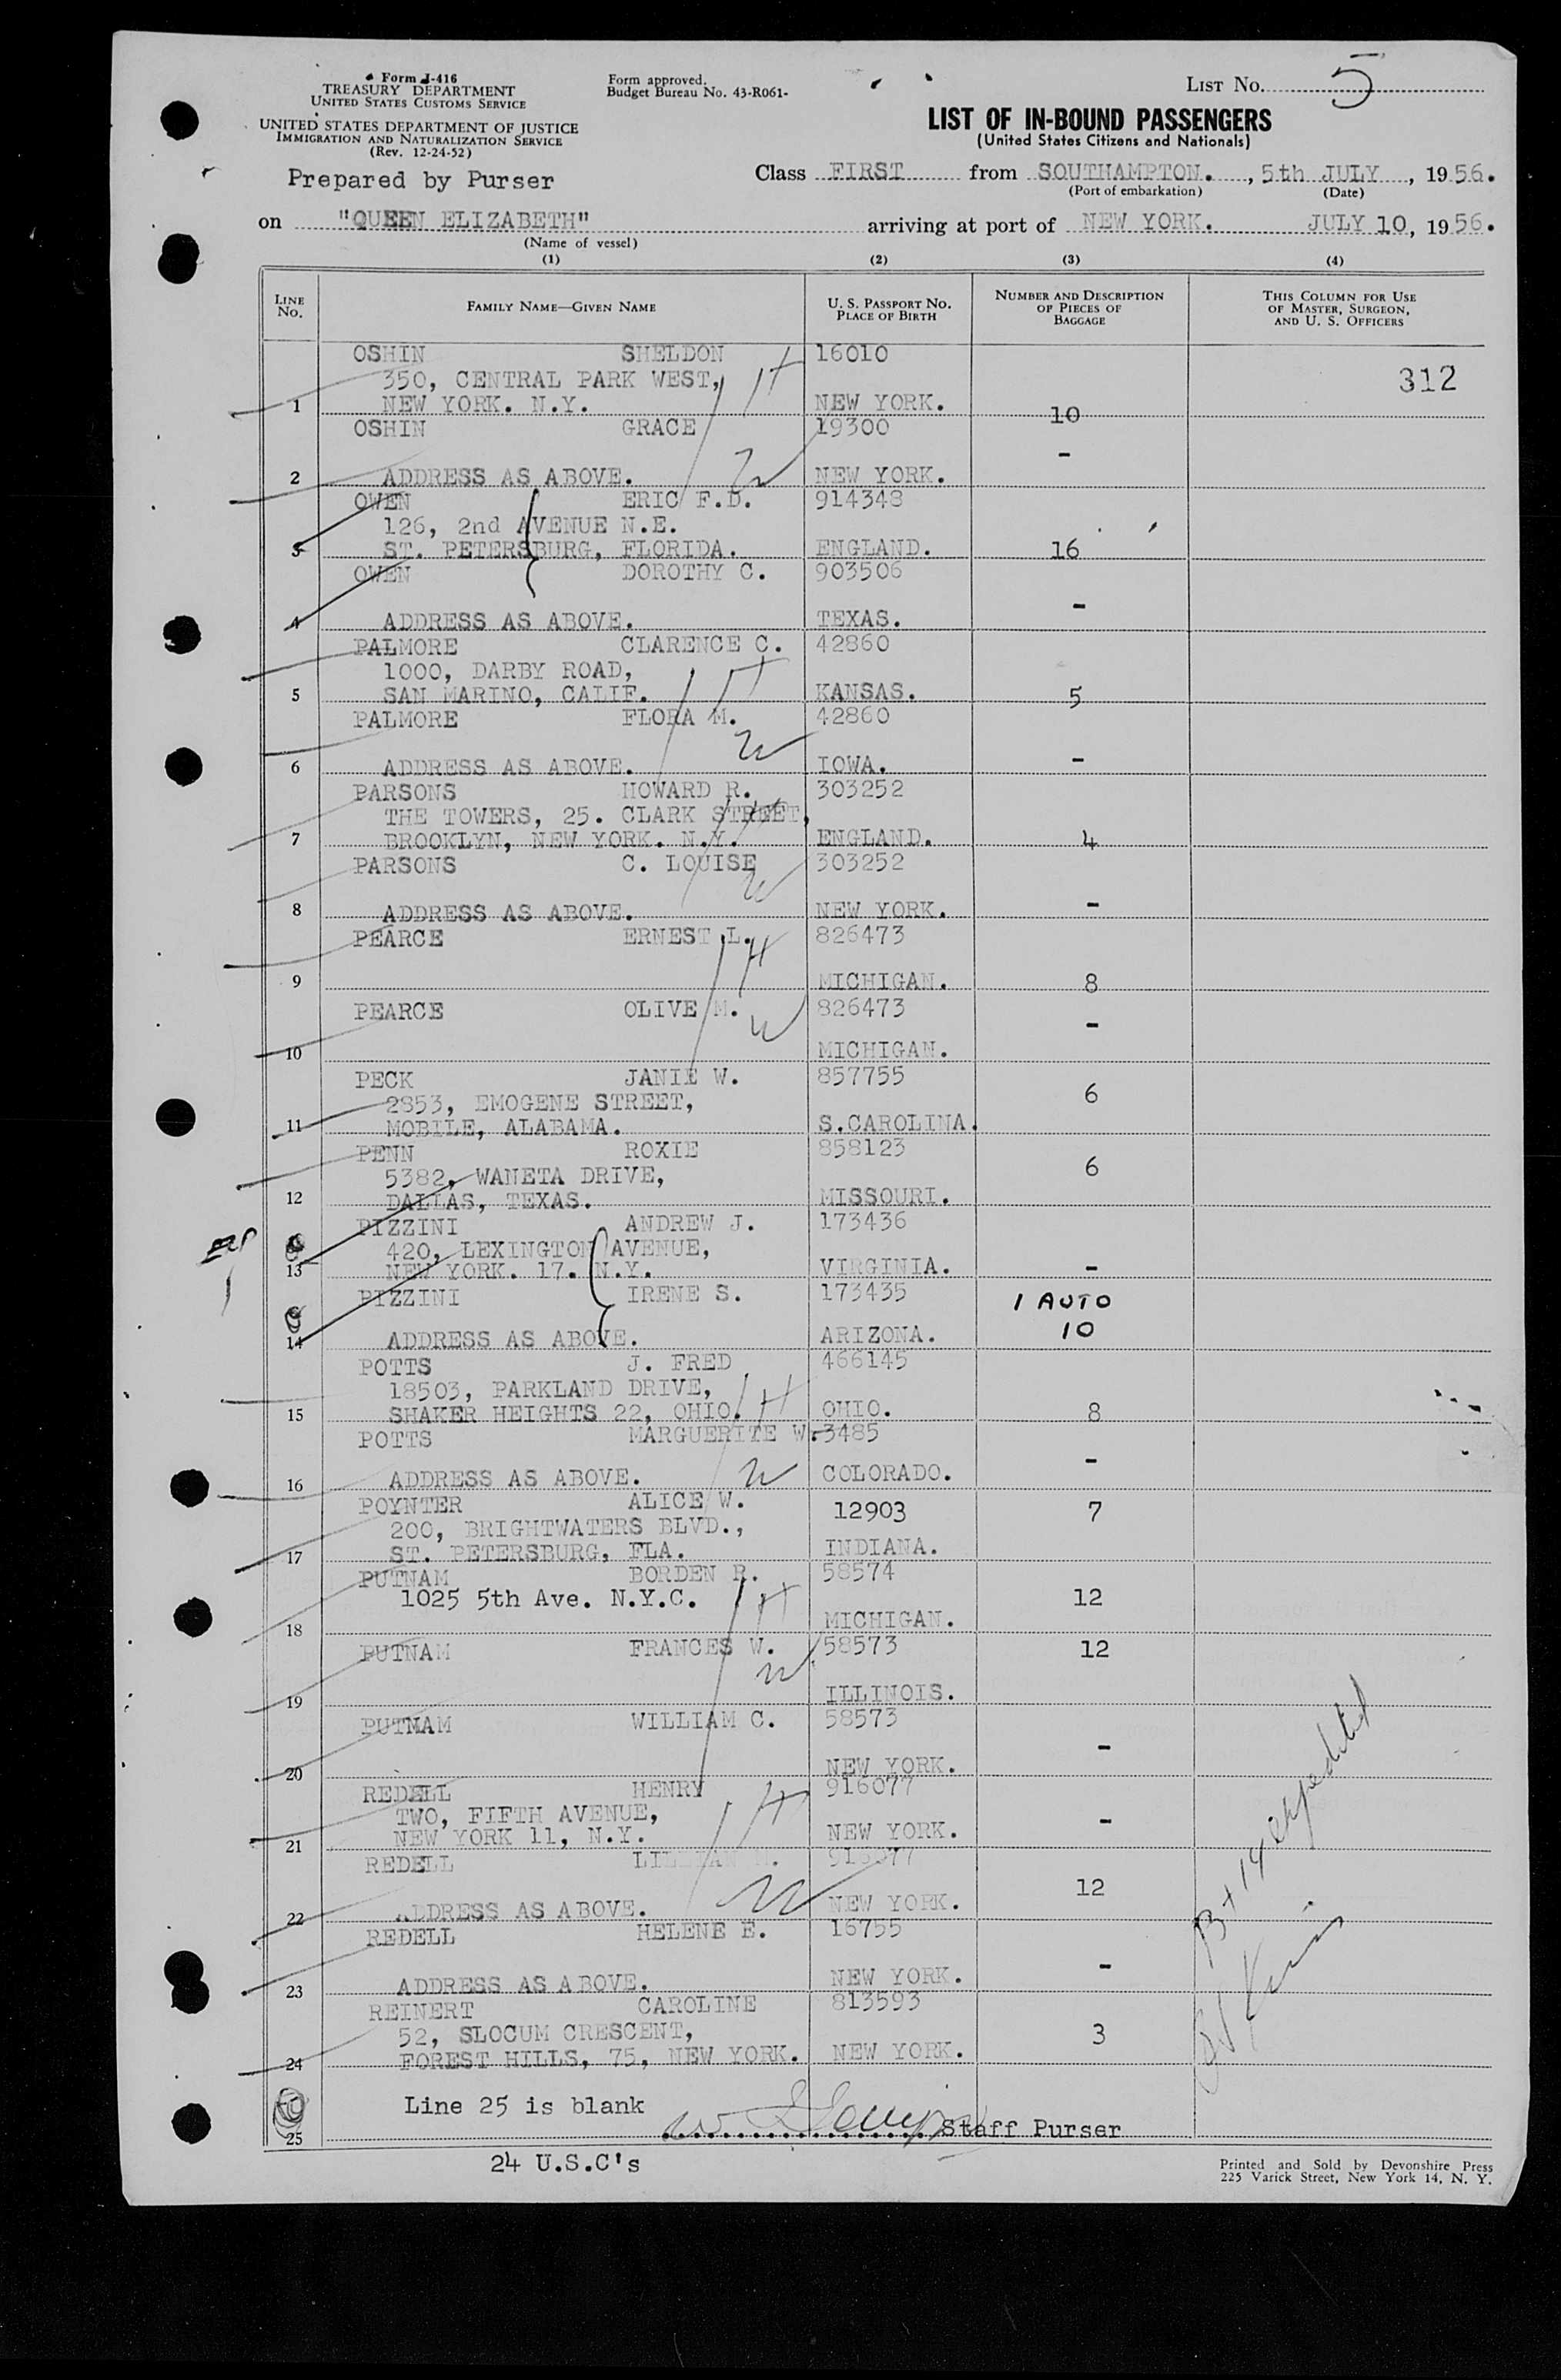 Form I-416
TREASURY DEPARTMENT
UNITED STATES CUSTOMS SERVICE
UNITED STATES DEPARTMENT OF JUSTICE
IMMIGRATION AND NATURALIZATION SERVICE
(Rev. 12-24-52)
Form approved.
Budget Bureau No. 43-R061-
LIST No. 5
LIST OF IN-BOUND PASSENGERS
(United States Citizens and Nationals)
Prepared by Purser
Class FIRST from SOUTHAMPTON. , 5th JULY , 1956.
(Port of embarkation) (Date)
on "QUEEN ELIZABETH" arriving at port of NEW YORK. JULY 10, 1956.
(Name of vessel)
(1) (2) (3) (4)
LINE No. FAMILY NAME—GIVEN NAME U. S. PASSPORT No. PLACE OF BIRTH NUMBER AND DESCRIPTION OF PIECES OF BAGGAGE THIS COLUMN FOR USE OF MASTER, SURGEON, AND U. S. OFFICERS
OSHIN SHELDON 16010
350, CENTRAL PARK WEST, H 312
1 NEW YORK. N.Y. NEW YORK. 10
OSHIN GRACE 19300
W -
2 ADDRESS AS ABOVE. NEW YORK.
OWEN ERIC F.D. 914348
126, 2nd AVENUE N.E.
3 ST. PETERSBURG, FLORIDA. ENGLAND. 16
OWEN DOROTHY C. 903506
-
4 ADDRESS AS ABOVE. TEXAS.
PALMORE CLARENCE C. 42860
1000, DARBY ROAD, H
5 SAN MARINO, CALIF. KANSAS. 5
PALMORE FLORA M. 42860
W
6 ADDRESS AS ABOVE. IOWA. -
PARSONS HOWARD R. 303252
THE TOWERS, 25. CLARK STREET, H
7 BROOKLYN, NEW YORK. N.Y. ENGLAND. 4
PARSONS C. LOUISE 303252
W
8 ADDRESS AS ABOVE. NEW YORK. -
PEARCE ERNEST L. 826473
H
9 MICHIGAN. 8
PEARCE OLIVE M. 826473
W -
10 MICHIGAN.
PECK JANIE W. 857755
2853, EMOGENE STREET, 6
11 MOBILE, ALABAMA. S.CAROLINA.
PENN ROXIE 858123
5382, WANETA DRIVE, 6
12 DALLAS, TEXAS. MISSOURI.
PIZZINI ANDREW J. 173436
420, LEXINGTON AVENUE,
13 NEW YORK. 17. N.Y. VIRGINIA. -
PIZZINI IRENE S. 173435 1 AUTO
14 ADDRESS AS ABOVE. ARIZONA. 10
POTTS J. FRED 466145
18503, PARKLAND DRIVE, H
15 SHAKER HEIGHTS 22, OHIO. OHIO. 8
POTTS MARGUERITE W. 3485
16 ADDRESS AS ABOVE. W COLORADO. -
POYNTER ALICE W. 12903 7
200, BRIGHTWATERS BLVD.,
17 ST. PETERSBURG, FLA. INDIANA.
PUTNAM BORDEN R. 58574
1025 5th Ave. N.Y.C. H 12
18 MICHIGAN.
PUTNAM FRANCES W. 58573 12
W
19 ILLINOIS.
PUTNAM WILLIAM C. 58573
-
20 NEW YORK.
REDELL HENRY 916077
TWO, FIFTH AVENUE, H
21 NEW YORK 11, N.Y. NEW YORK. -
REDELL 916077
W 12
22 ADDRESS AS ABOVE. NEW YORK.
REDELL HELENE E. 16755
-
23 ADDRESS AS ABOVE. NEW YORK.
REINERT CAROLINE 813593
52, SLOCUM CRESCENT, 3
24 FOREST HILLS, 75, NEW YORK. NEW YORK.
expedited
Line 25 is blank
25 Staff Purser
24 U.S.C's
Printed and Sold by Devonshire Press
225 Varick Street, New York 14, N. Y.